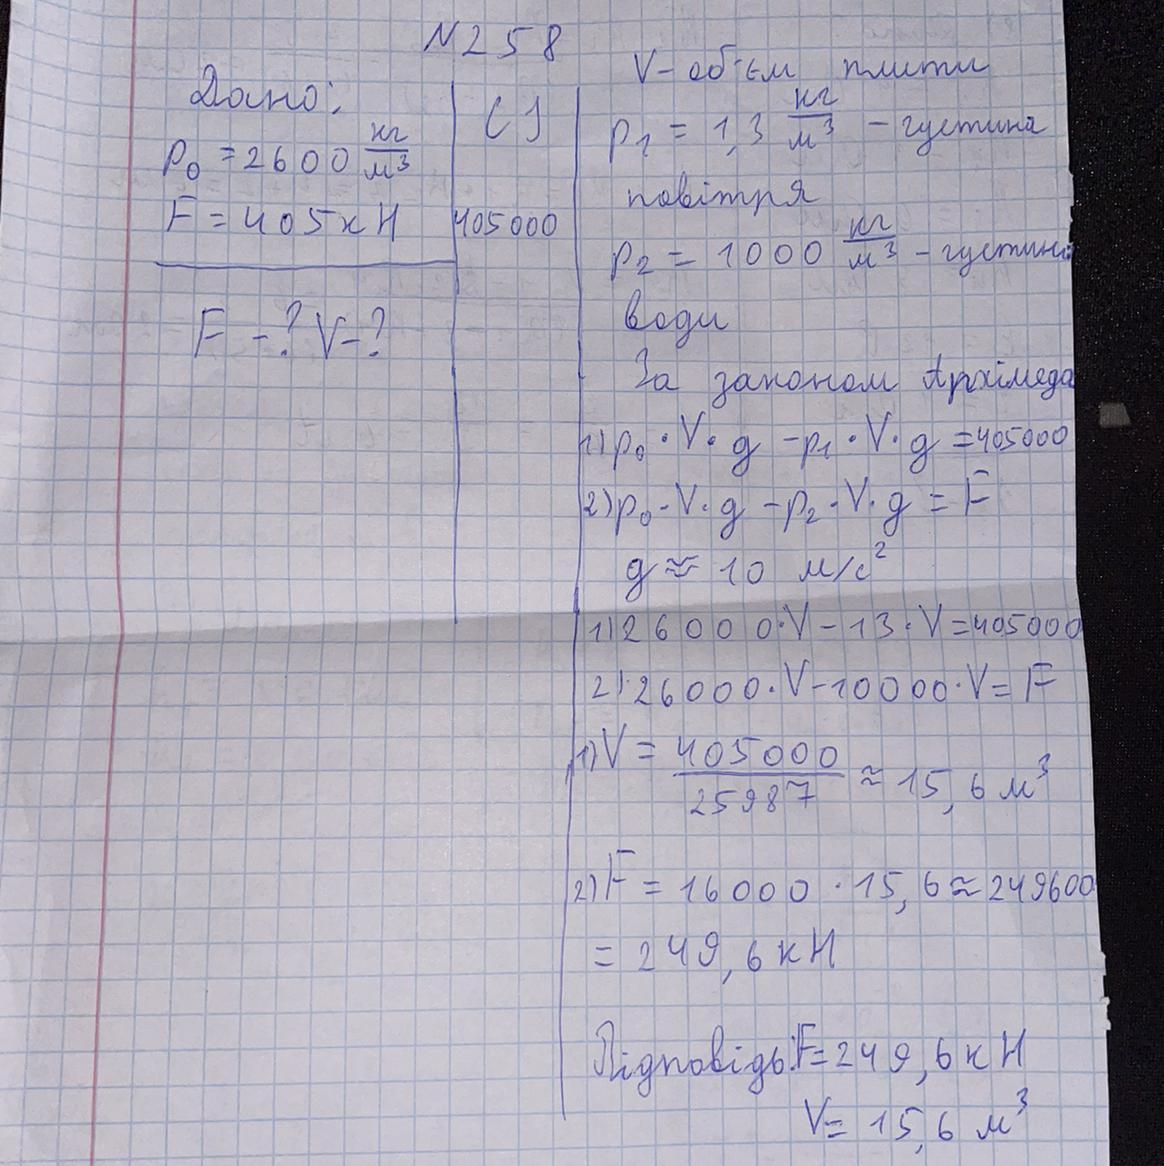 N258
Дано:
СІ
p₀ = 2600 кг/м³
F = 405 кН
405000
F -? V-?
V - об'єм плити
p₁ = 1,3 кг/м³ - густина
повітря
p₂ = 1000 кг/м³ - густина
води
За законом Архімеда
1) p₀ · V · g - p₁ · V · g = 405000
2) p₀ · V · g - p₂ · V · g = F
g ≈ 10 м/с²
1) 26000 · V - 13 · V = 405000
2) 26000 · V - 10000 · V = F
1) V = 405000/25987 ≈ 15,6 м³
2) F = 16000 · 15,6 ≈ 249600
= 249,6 кН
Відповідь: F = 249,6 кН
V = 15,6 м³